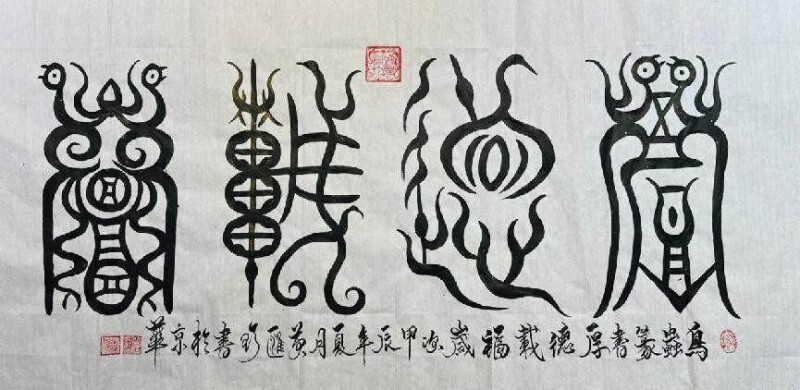 厚德載福
鳥蟲篆書厚德載福歲次甲辰年夏月黃匯書於京華